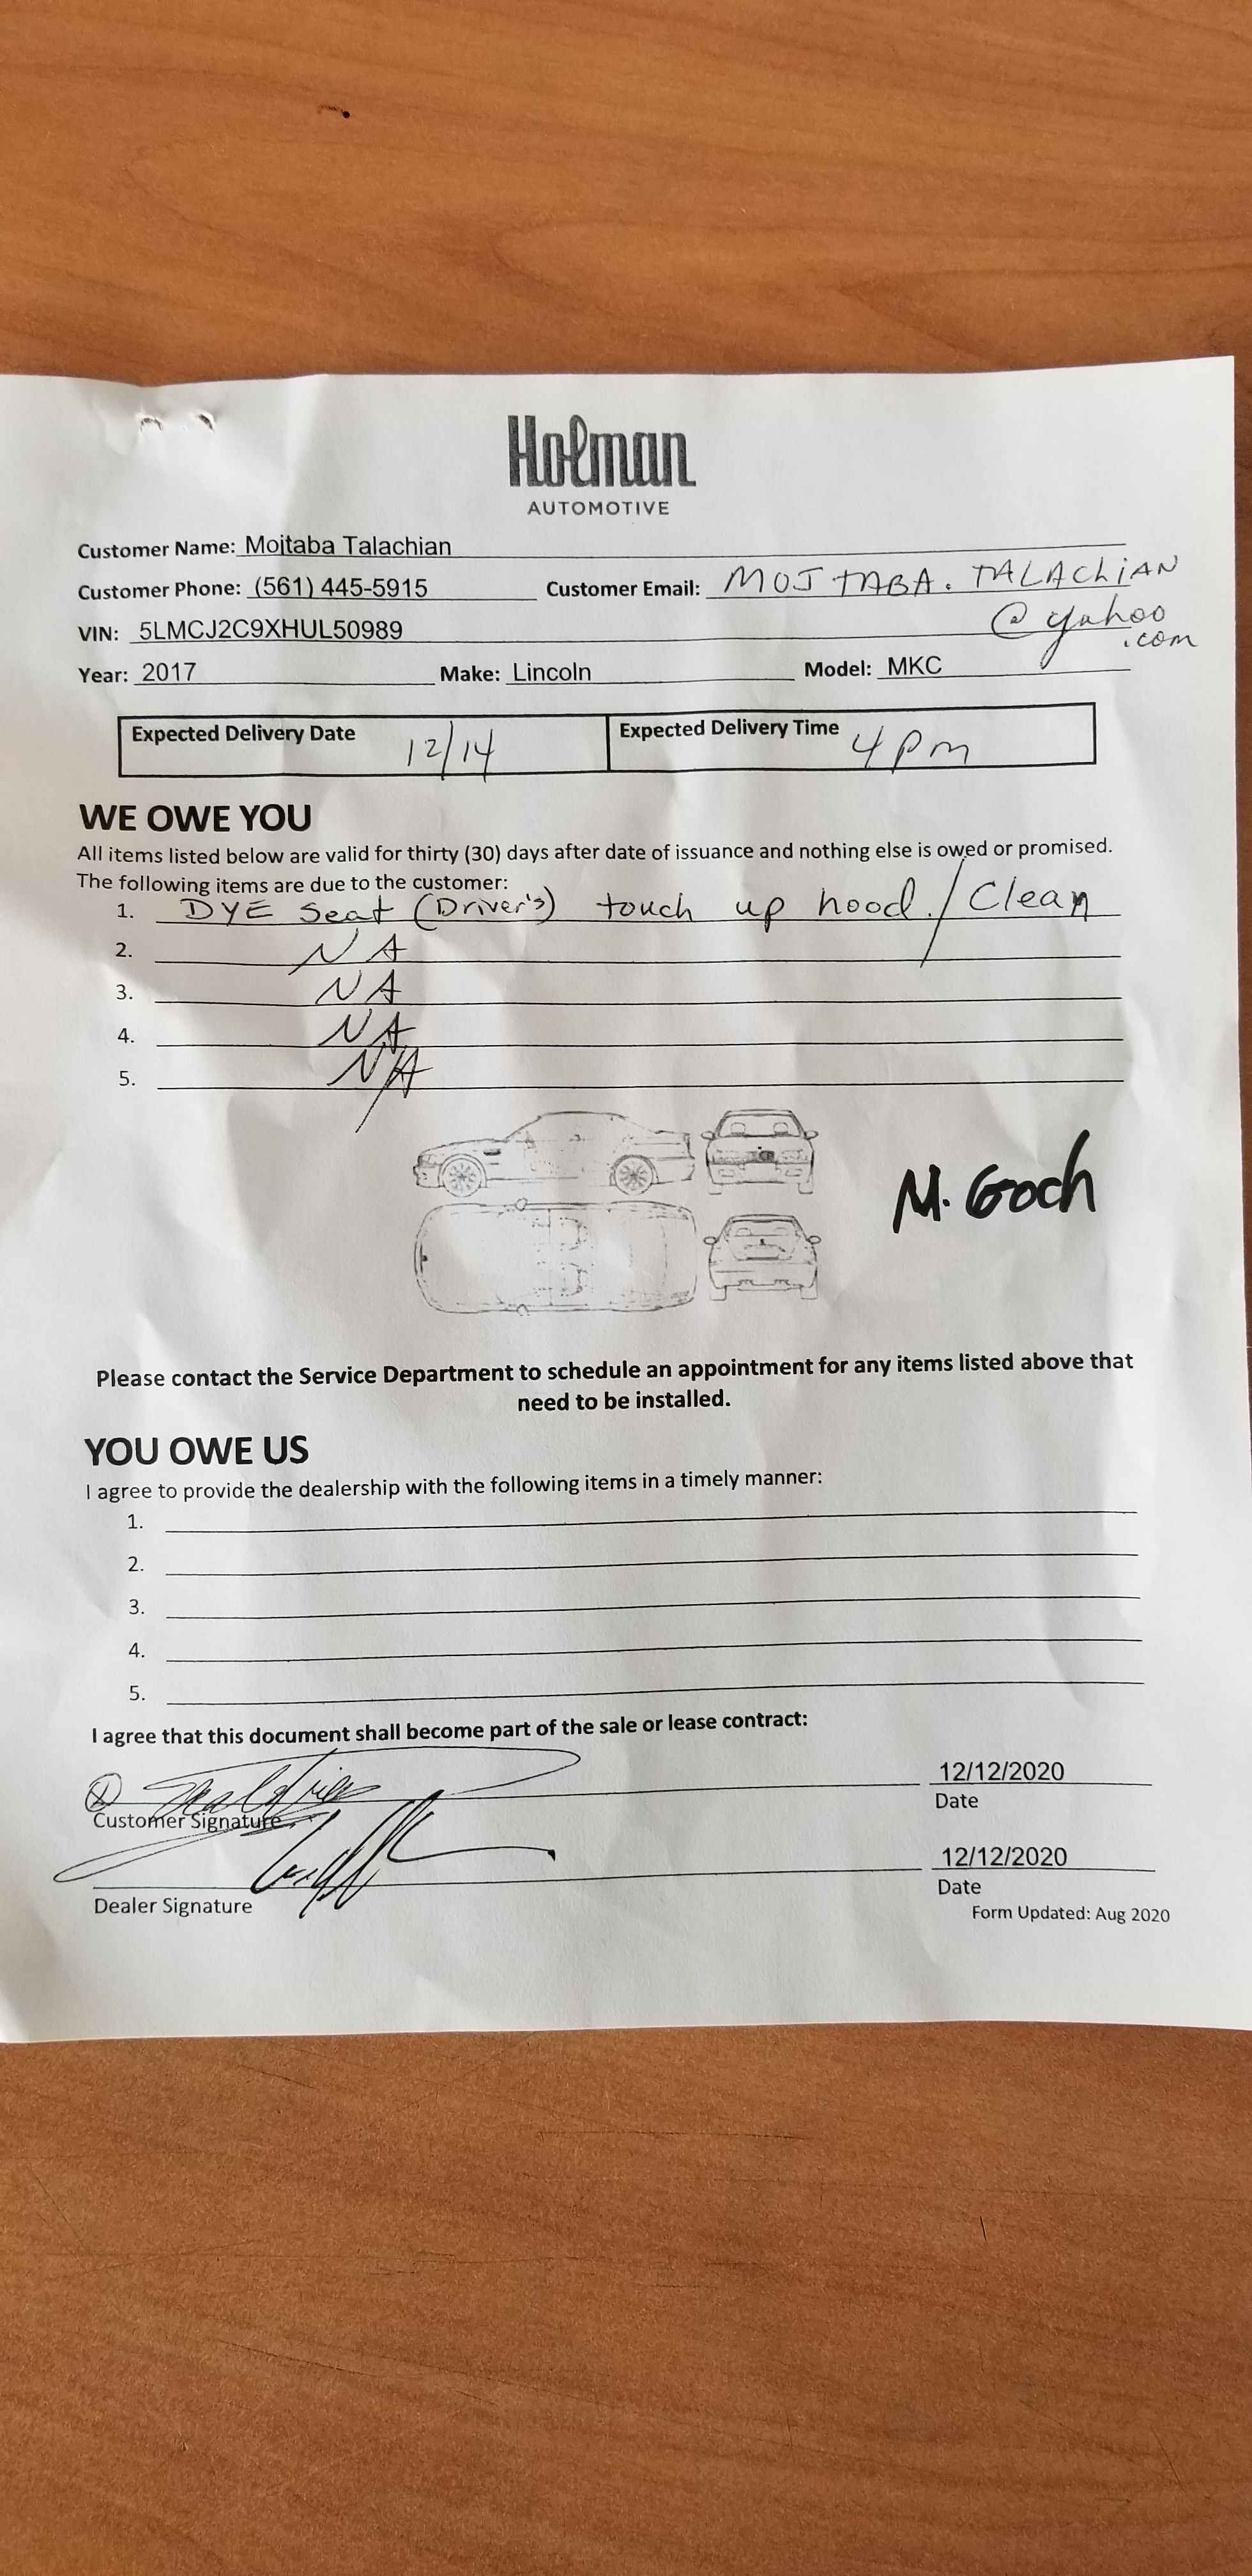 Holman
AUTOMOTIVE
Customer Name: Mojtaba Talachian
Customer Phone: (561) 445-5915 Customer Email: MOJTABA.TALACHiAN
@yahoo
.com
VIN: 5LMCJ2C9XHUL50989
Year: 2017 Make: Lincoln Model: MKC
Expected Delivery Date 12/14 Expected Delivery Time 4pm
WE OWE YOU
All items listed below are valid for thirty (30) days after date of issuance and nothing else is owed or promised.
The following items are due to the customer:
1. DYE Seat (Driver's) touch up hood / Clean
2. NA
3. NA
4. NA
5. N/A
M. Goch
Please contact the Service Department to schedule an appointment for any items listed above that
need to be installed.
YOU OWE US
I agree to provide the dealership with the following items in a timely manner:
1.
2.
3.
4.
5.
I agree that this document shall become part of the sale or lease contract:
12/12/2020
Customer Signature Date
12/12/2020
Dealer Signature Date
Form Updated: Aug 2020